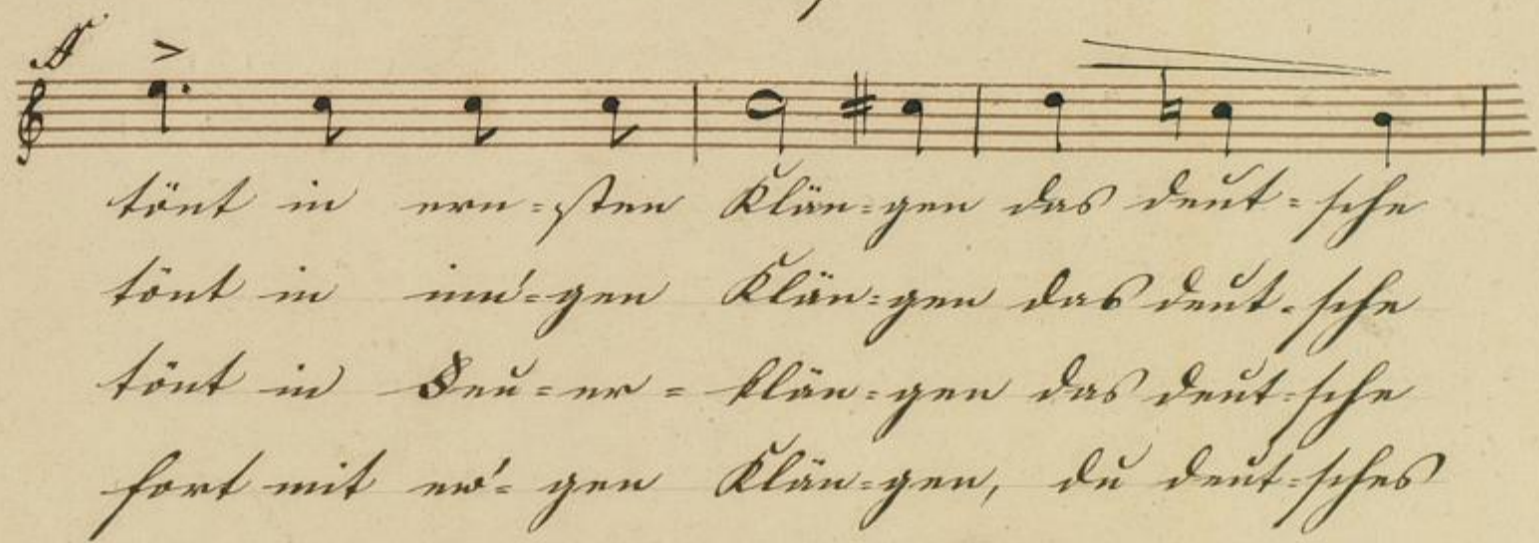 ff
tönt in ern-sten Klän-gen das deut-sche
tönt in inn'-gen Klän-gen das deut-sche
tönt in Feu-er-klän-gen das deut-sche
fort mit ew'-gen Klän-gen, du deut-sches